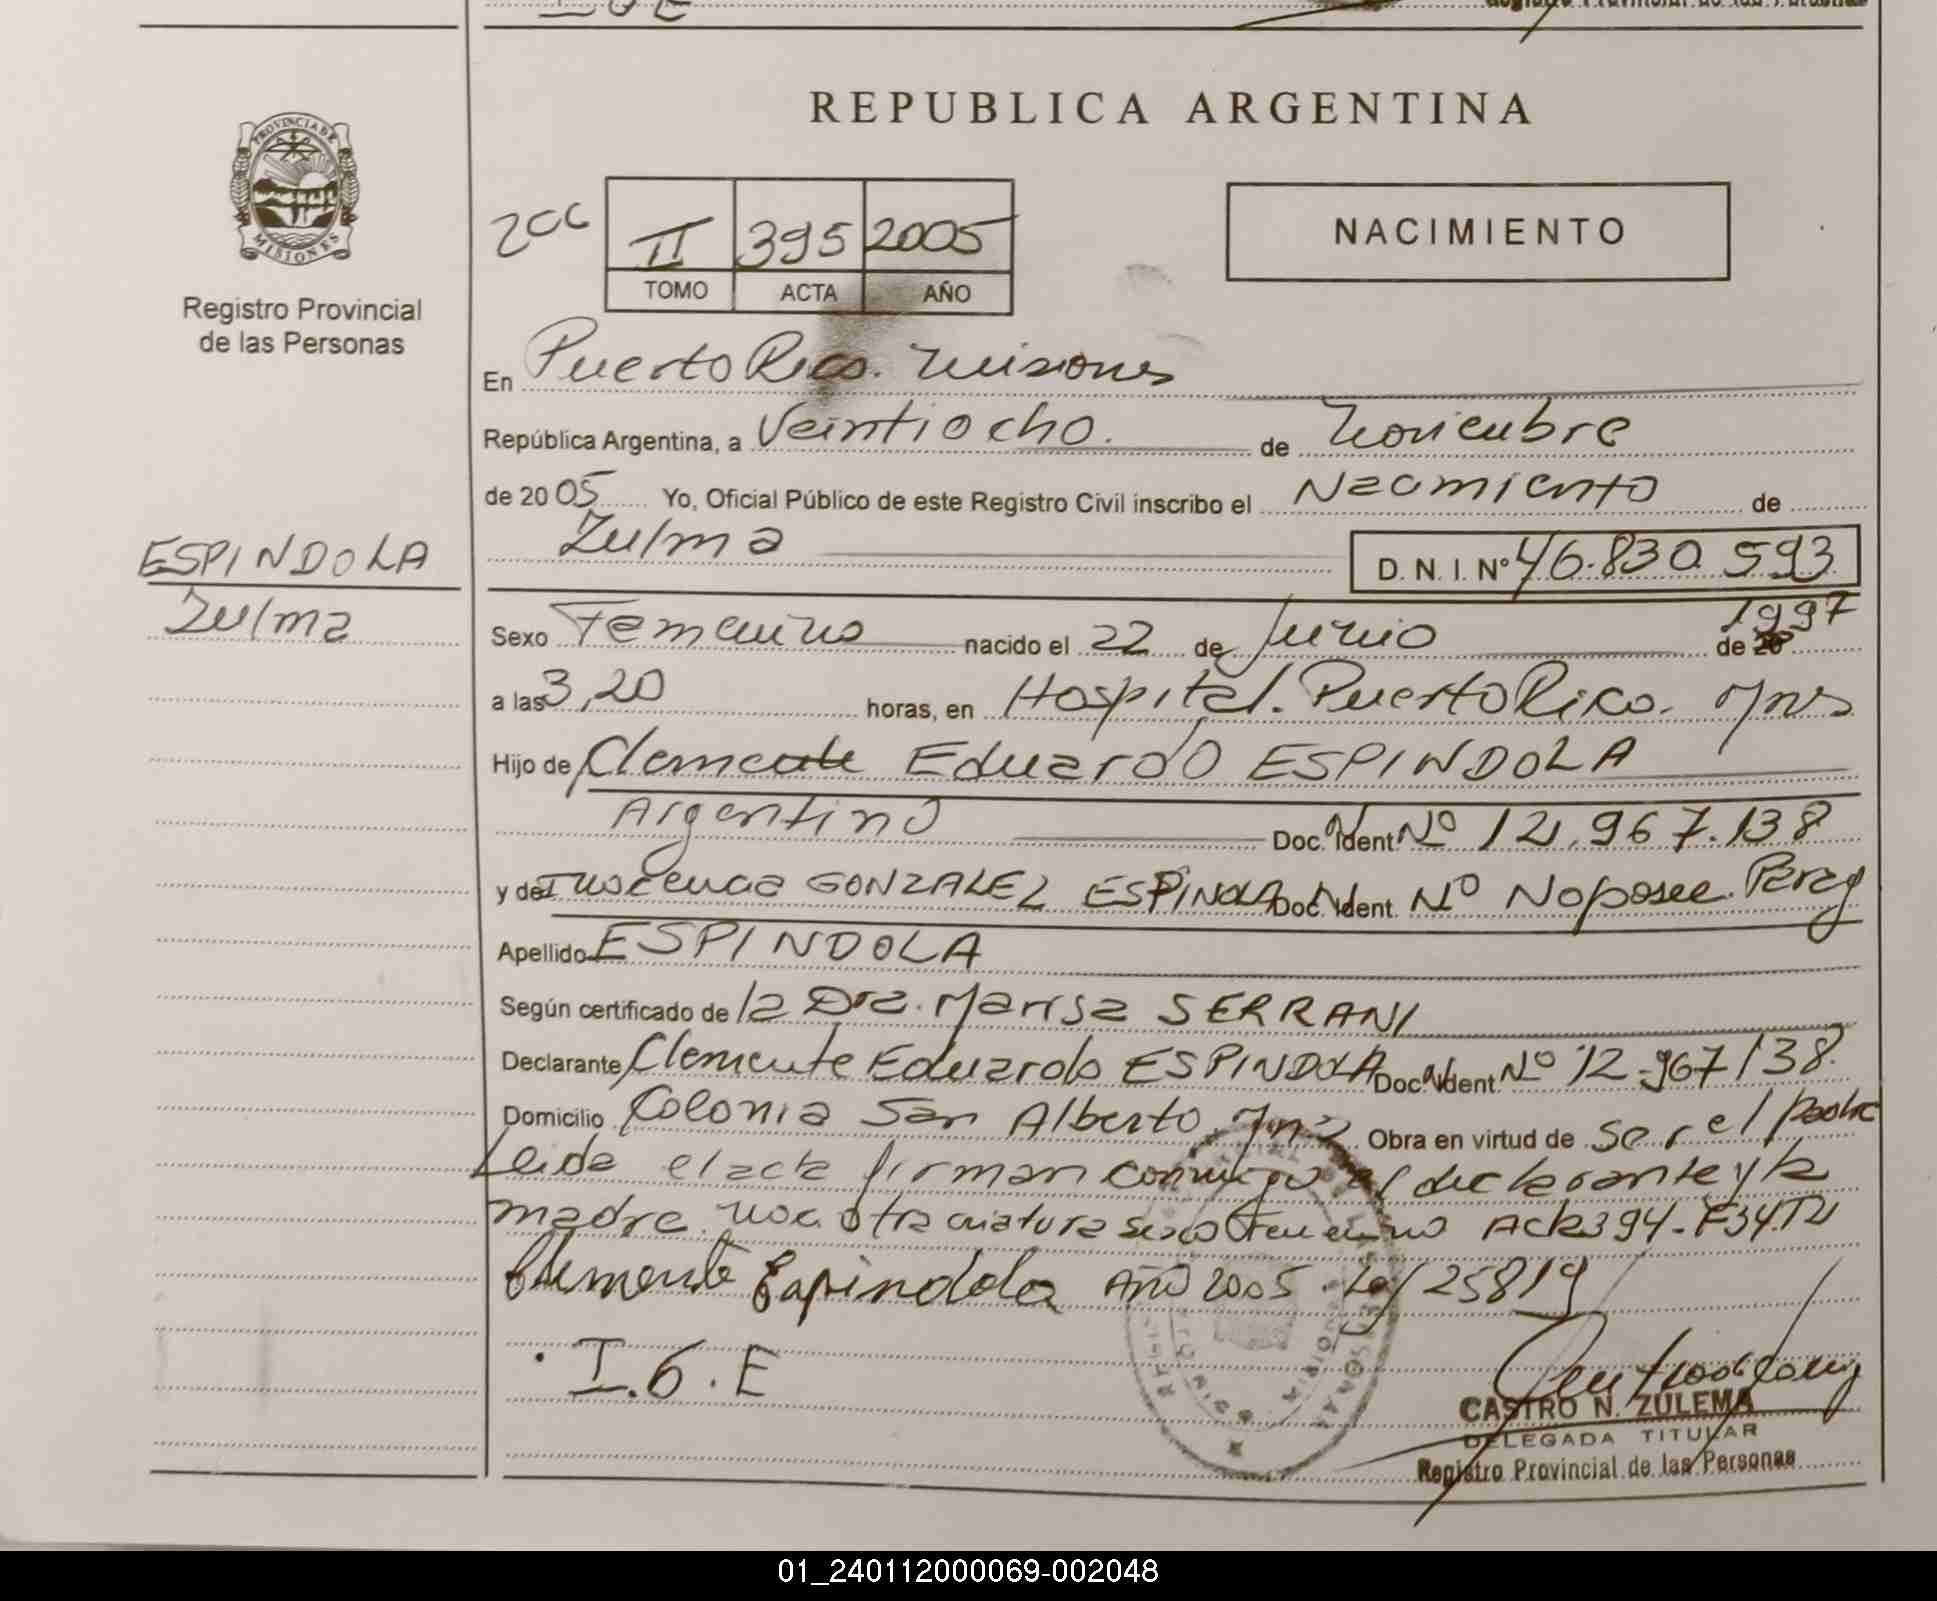 REPUBLICA ARGENTINA
PROVINCIA DE
MISIONES
Registro Provincial
de las Personas
206
II 395 2005
TOMO ACTA AÑO
NACIMIENTO
En Puerto Rico. Misiones
República Argentina, a Veintiocho. de Noviembre
de 20 05 Yo, Oficial Público de este Registro Civil inscribo el Nacimiento de
Zulma D. N. I. Nº 46.830.593
ESPINDOLA
Zulma
Sexo Femenino nacido el 22 de Junio de 1997
a las 3,20 horas, en Hospital. Puerto Rico. Mnes
Hijo de Clemente Eduardo ESPINDOLA
Argentino Doc. Ident Nº 12.967.138
y de Inocencia GONZALEZ ESPINOLA Doc. Ident. Nº No posee. Parag
Apellido ESPINDOLA
Según certificado de la Dra. Marisa SERRANI
Declarante Clemente Eduardo ESPINDOLA Doc. Ident Nº 12.967138.
Domicilio Colonia San Alberto Mnes Obra en virtud de ser el padre
Leida el acta firman conmigo el declarante y la
madre. otra criatura sexo femenino Acta 394-F34.TII
Clemente Espindola Año 2005. Ley 25819
I.G.E
CASTRO N. ZULEMA
DELEGADA TITULAR
Registro Provincial de las Personas
01_240112000069-002048